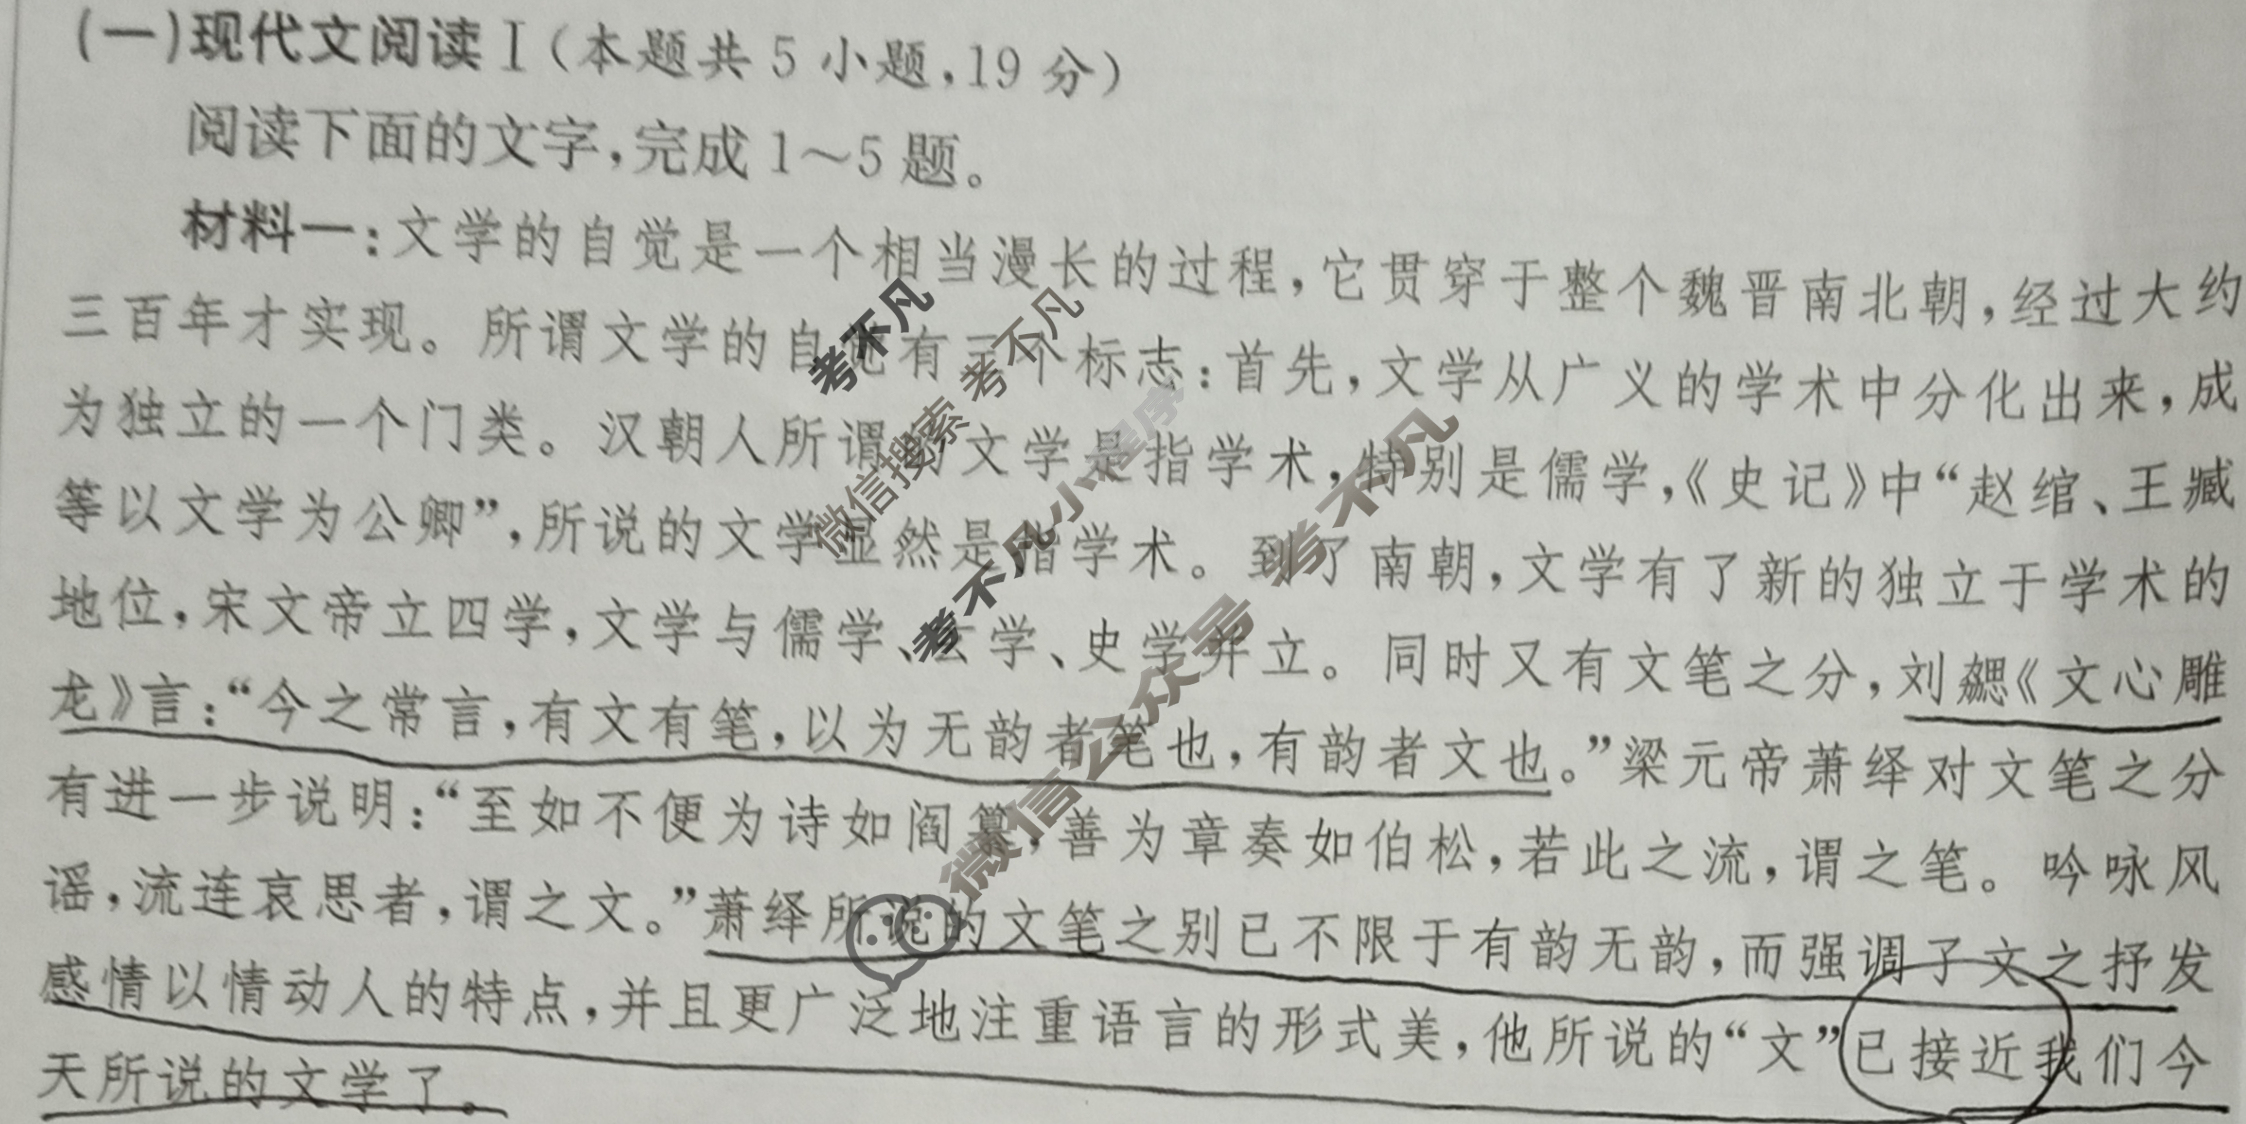 (一)现代文阅读Ⅰ(本题共5小题,19分)
阅读下面的文字,完成1～5题。
材料一:文学的自觉是一个相当漫长的过程,它贯穿于整个魏晋南北朝,经过大约
三百年才实现。所谓文学的自觉有三个标志:首先,文学从广义的学术中分化出来,成
为独立的一个门类。汉朝人所谓的文学是指学术,特别是儒学,《史记》中“赵绾、王臧
等以文学为公卿”,所说的文学显然是指学术。到了南朝,文学有了新的独立于学术的
地位,宋文帝立四学,文学与儒学、玄学、史学并立。同时又有文笔之分,刘勰《文心雕
龙》言:“今之常言,有文有笔,以为无韵者笔也,有韵者文也。”梁元帝萧绎对文笔之分
有进一步说明:“至如不便为诗如阎纂,善为章奏如伯松,若此之流,谓之笔。吟咏风
谣,流连哀思者,谓之文。”萧绎所说的文笔之别已不限于有韵无韵,而强调了文之抒发
感情以情动人的特点,并且更广泛地注重语言的形式美,他所说的“文”已接近我们今
天所说的文学了。
考不凡
考不凡
微信搜索
考不凡小程序
考不凡
微信公众号